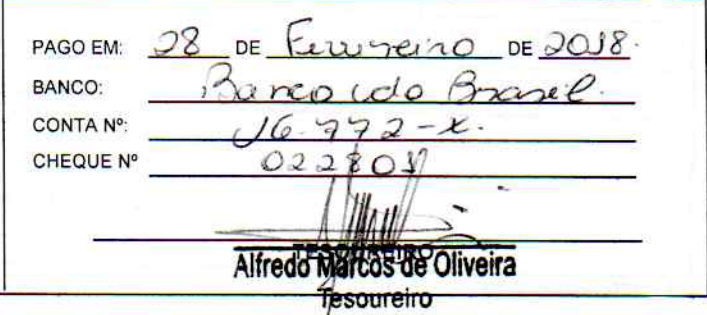 PAGO EM: 28 DE Fevereiro DE 2018.
BANCO: Banco do Brasil.
CONTA Nº: 16.772-x.
CHEQUE Nº 022801
TESOUREIRO
Alfredo Marcos de Oliveira
Tesoureiro